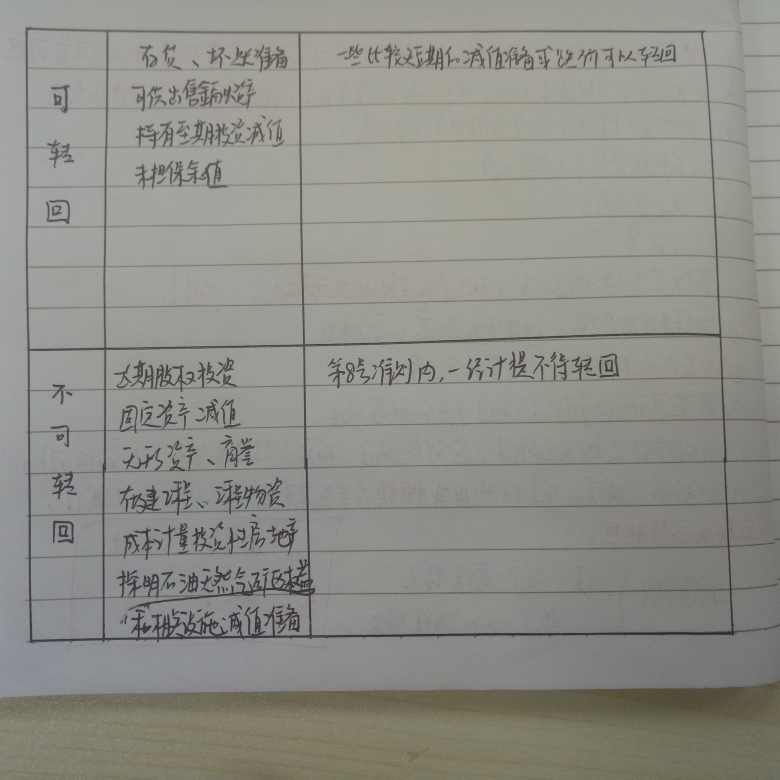 可转回
存货、坏账准备
可供出售金融资产
持有至期投资减值
未担保余值
一些比较短期的减值准备或跌价可以转回
不可转回
长期股权投资
固定资产减值
无形资产、商誉
在建工程、工程物资
成本计量投资性房地产
探明石油天然气矿区权益
和相关设施减值准备
第8号准则内,一经计提不得转回